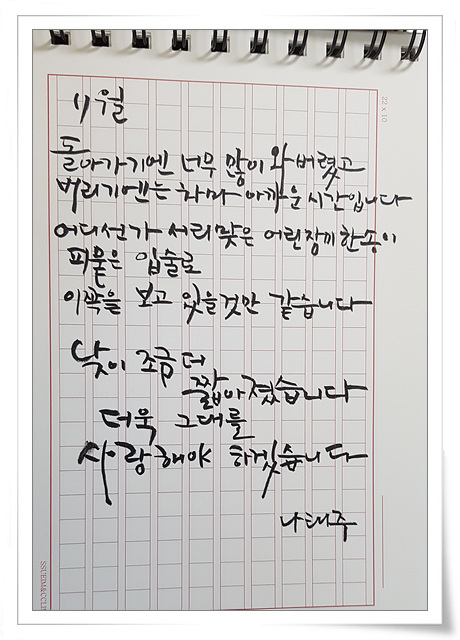 11월
돌아가기엔 너무 많이 와버렸고
버리기에는 차마 아까운 시간입니다
어디선가 서리맞은 어린장미 한송이
피묻은 입술로
이쪽을 보고 있을것만 같습니다
낮이 조금 더
짧아졌습니다
더욱 그대를
사랑해야 하겠습니다
나태주
22 x 10